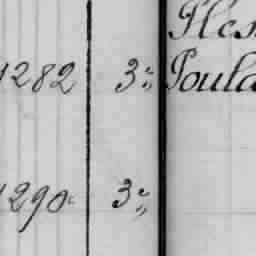 1282 3 " Poula
1290 3 "